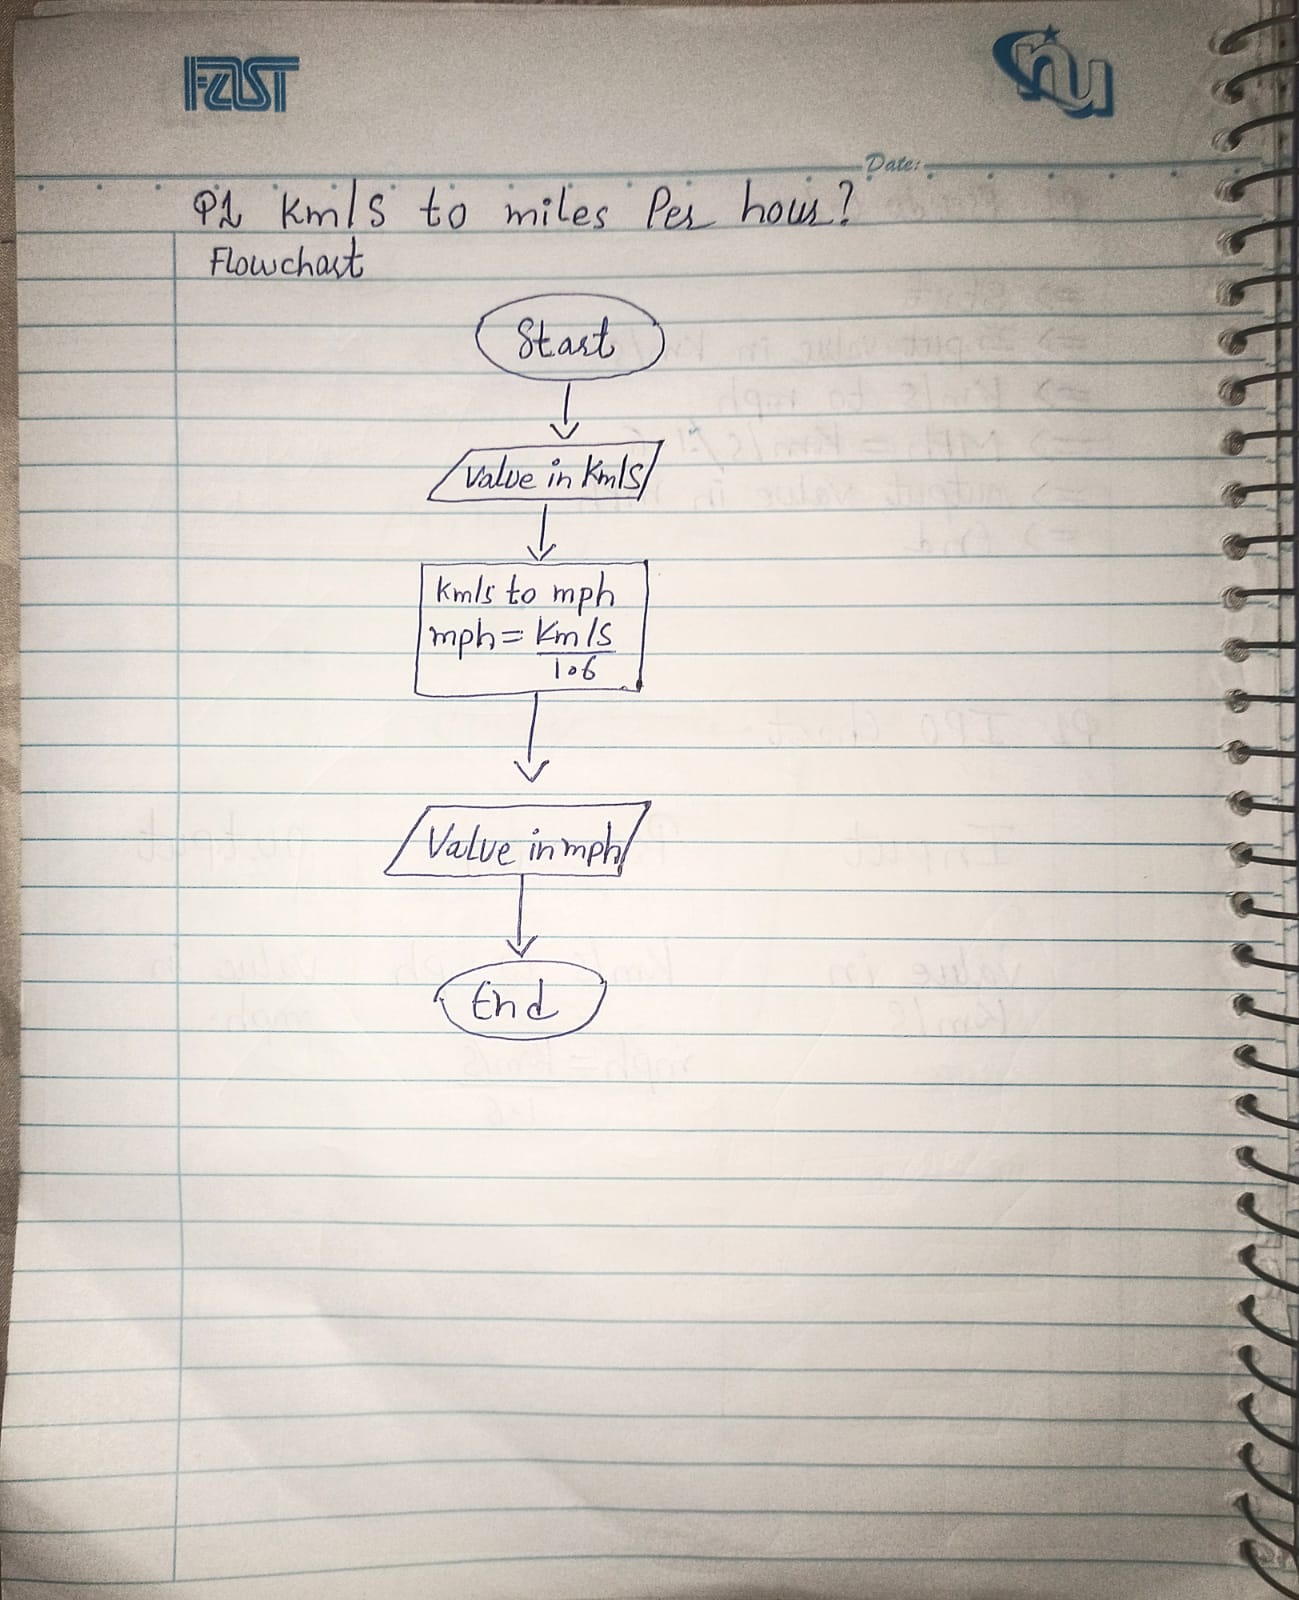 FAST
nu
Date:
P1 Km/s to miles Per hour?
Flowchart
Start
Value in Km/s
Km/s to mph
mph = Km/s
1.6
Value in mph
End